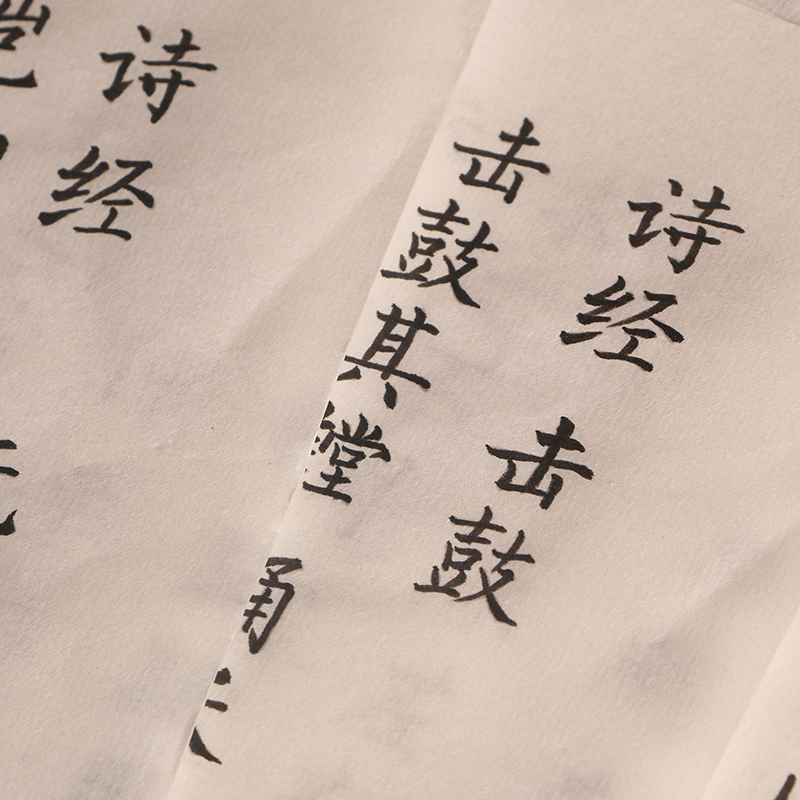 诗经 击鼓
击鼓其镗
诗经